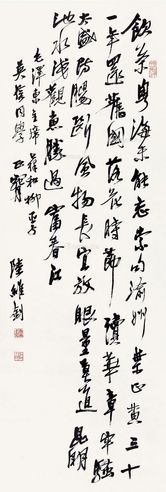 飲茶粤海未能忘索句渝州葉正黄三十
一年還舊國落花時節讀華章牢騷
太盛防腸斷風物長宜放眼量莫道昆明
池水淺觀魚勝過富春江
毛澤東主席 和柳亞子
同學
陸維釗